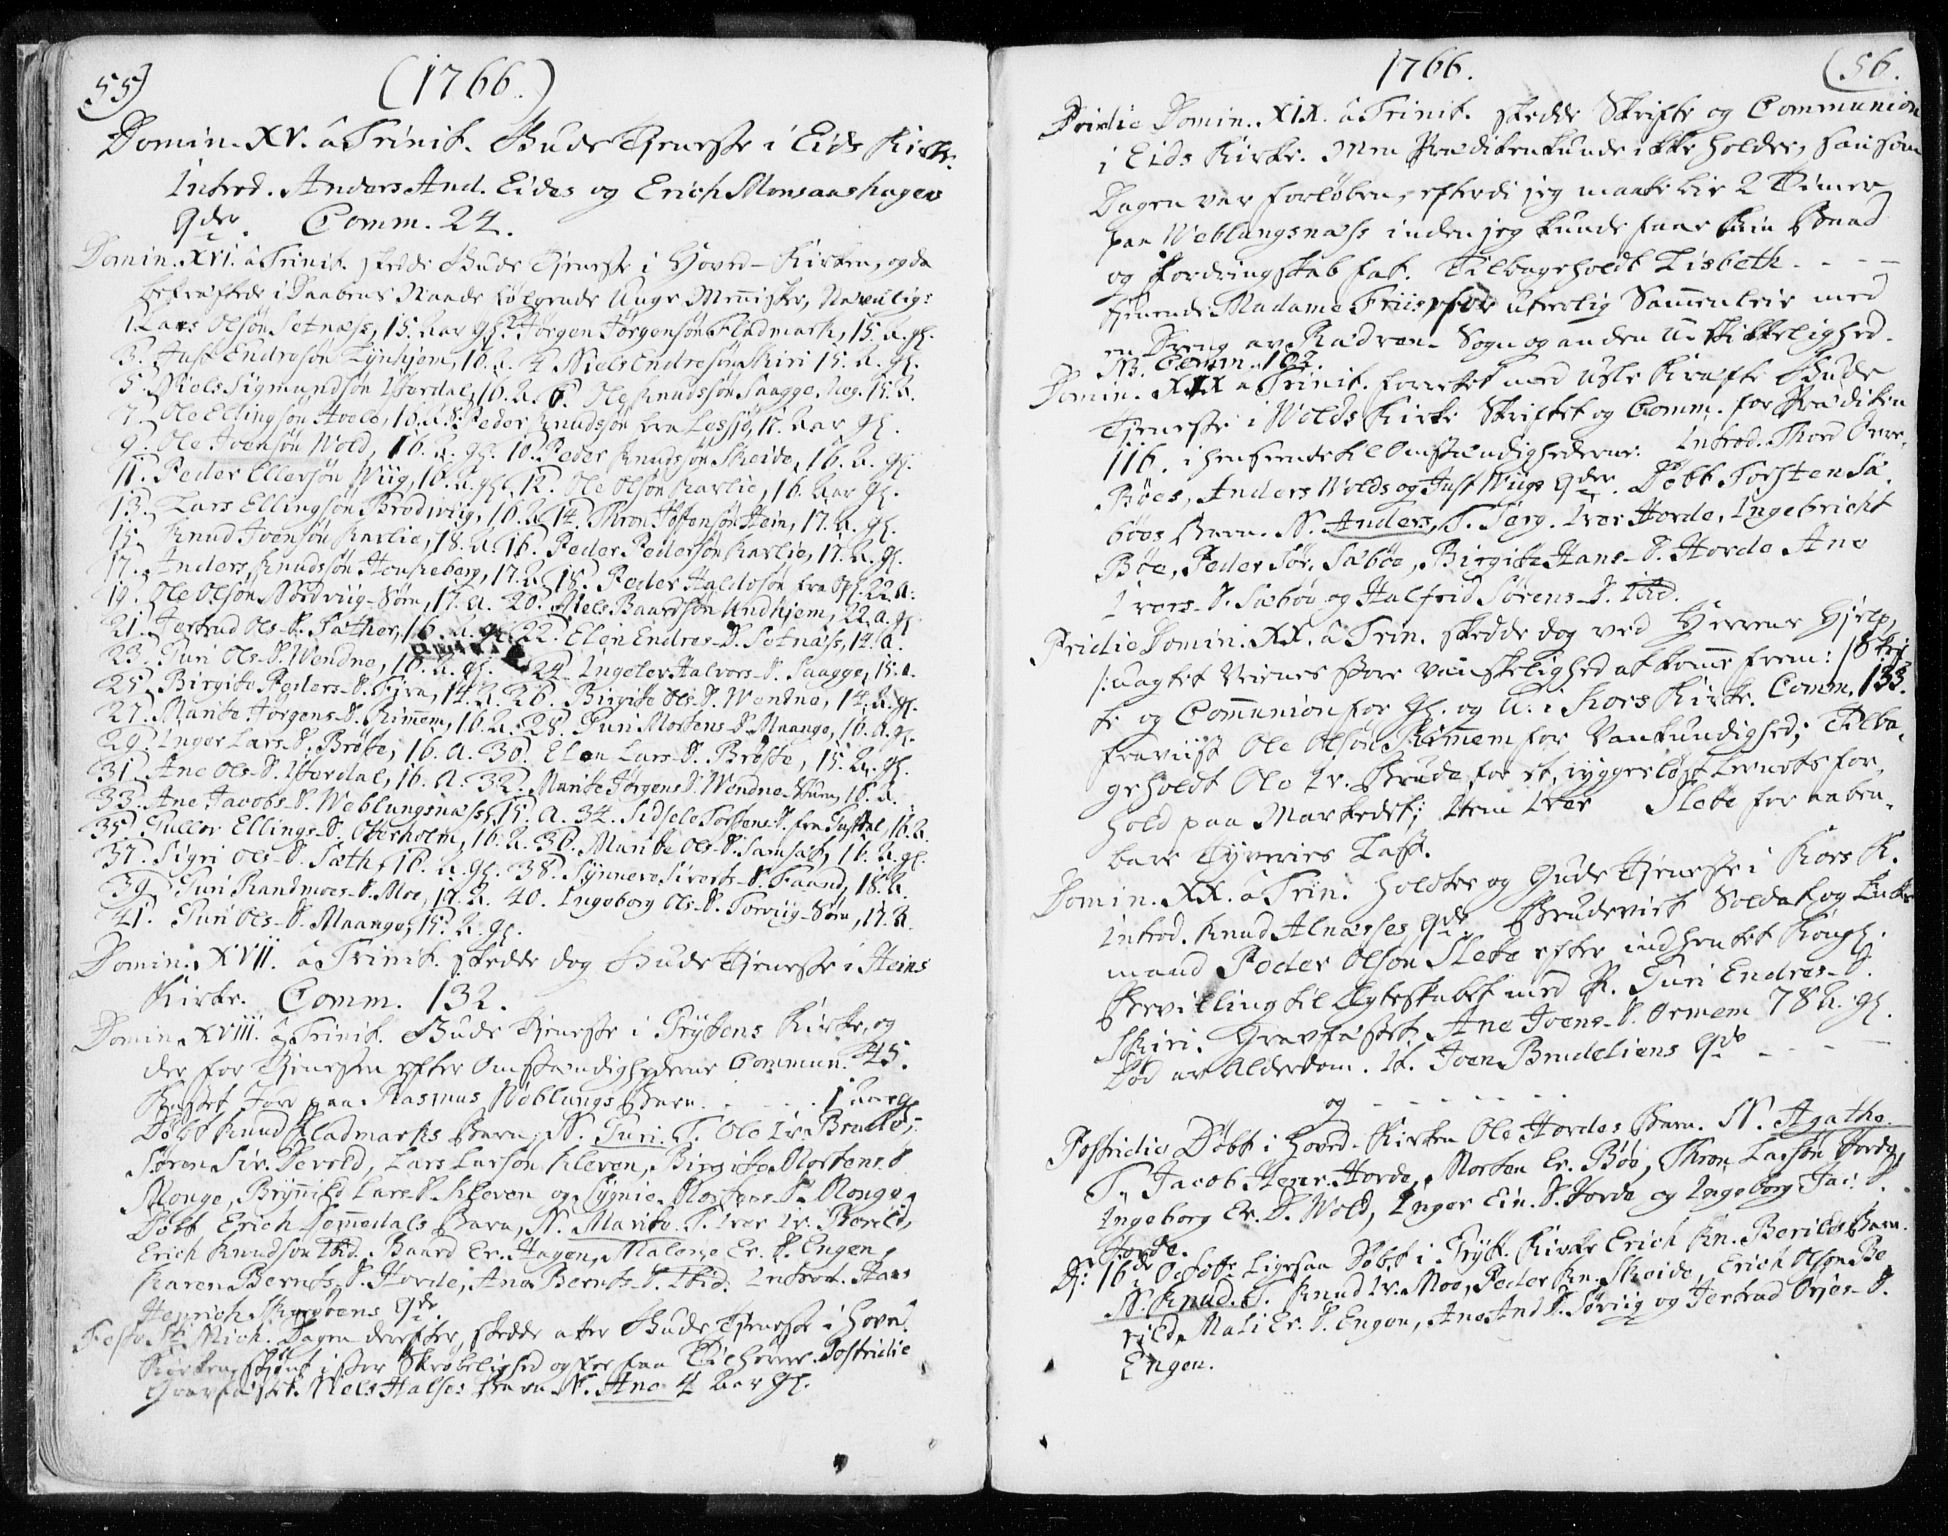 55)
(1766.)
Domin. XV. a Trinit. Guds Tjeneste i Eids Kirke.
Introd. Anders And. Eides og Erich Monsaashagen
Qdr. Comm. 24.
Domin. XVI. a Trinit. skedde Guds Tjeneste i Hoved-Kirken, og da
bekræftede i Daabens Naade følgende Unge Mennisker, Navnlig:
1. Lars Olsøn Setnæss, 15. Aar gl. 2. Jørgen Jørgensøn Fladmark, 15. A. gl.
3. Just Endresøn Lynhjem, 16. A. 4. Niels Endresøn Skiri 15. A. gl.
5. Niels Sigmundsøn Isterdal, 16. A. 6. Ole Knudssøn Saagge, 15. A.
7. Ole Ellingsøn Hoele, 16. A. 8. Peder Knudssøn fra Lessjø, 17. Aar gl.
9. Ole Joensøn Wold, 16. A. gl. 10. Peder Knudssøn Skeide, 16. A. gl.
11. Peder Ellersøn Wiig, 16. A. gl. 12. Ole Olsøn Karlie, 16. Aar gl.
13. Lars Ellingsøn Brodwiig, 16. A. 14. Thron Jostensøn Hein, 17. A. gl.
15. Knud Joensøn Karlie, 18. A. 16. Peder Pedersøn Karlie, 17. A. gl.
17. Anders Knudssøn Houkeberg, 17. A. 18. Peder Haldosøn fra 22. A.
19. Ole Olsøn Nordviig-Søm, 17. A. 20. Niels Baardsøn Undhjem, 22. A. gl.
21. Jertrud Ols-D. Sæther, 16. A. gl. 22. Elen Endres-D. Setnæss, 14. A.
23. Turi Ols-D. Wendne, 16. A. gl. 24. Ingeler Halvors-D. Saagge, 15. A.
25. Birgite Peders-D. Fiva, 14. A. 26. Birgite Ols-D. Wendne, 14. A. gl.
27. Marite Jørgens-D. Rimmem, 16. A. 28. Turi Mortens-D. Maange, 16. A. gl.
29. Inger Lars-D. Brøste, 16. A. 30. Elen Lars-D. Brøste, 15. A. gl.
31. Ane Ols-D. Isterdal, 16. A. 32. Marite Jørgens-D. Wendne, 16. A.
33. Ane Jacobs-D. Weblungsnæss, 15. A. 34. Sidsele Torstens-D. fra 16. A.
35. Gullov Ellings-D. Otterholm, 16. A. 36. Marite Ols-D. 16. A. gl.
37. Sigri Ols-D. Sæth, 16. A. gl. 38. Synneve Siverts-D. Faand, 18. A.
39. Turi Randmoes-D. Moe, 17. A. 40. Ingeborg Ols-D. Torviig-Søm, 17. A.
41. Turi Ols-D. Maange, 15. A. gl.
Domin. XVII. a Trinit. skedde dog Guds Tjeneste i Heins
Kirke. Comm. 132.
Domin. XVIII. a Trinit. Guds Tjeneste i Grytens Kirke, og
der for Tjenesten efter Omstændighederne Commun. 45.
Kastet Jord paa Rasmus Wæblungs Barn . . . . 1 uge gl.
Døbt Knud Fladmarks Barn, N. Turi. T. Ole Iv. Brude,
Søren Siv. Devold, Lars Larsøn Kleven, Birgite Mortens-D.
Monge, Brynnild Lars-D. Kleven og Sygnie Mortens-D. Monge.
Døbt Erich Rommedals Barn, N. Marite. T. Iver Iv. Berild,
Erich Knudsøn Ibid. Baard Er. Hagen, Malene Er. D. Engen,
Karen Bernts-D. Horde, Ane Bernts-D. Ibid. Introd. Hans
Henrich Qdr
Festo Sti Mich. Dagen derefter, skedde atter Guds Tjeneste i Hoved
Kirken, skjønt i stor Skrøbelighed og for faa Tilhørere. Postridie
Gravfæstet Niels Halses Barn N. Ane 4 Aar gl.
1766.
(56.
Pridie Domin. XIX. a Trinit. skedde Skrifte og Communion
i Eids Kirke. Men Prædiken kunde ikke holdes, saasom
Dagen var forløben, efterdi jeg maatte bie 2 Timer
paa Weblungsnæss inden jeg kunde faae Baad
og Fordringskab fat. Tilbageholdt Lisbeth . . . .
tjenende Madame Friis for utærlig Sammenleie med
en Dreng av Rødven-Sogn og anden U-skikkelighed.
NB. Comm. 103.
Domin. XIX a Trinit. forrettet med usle Kræfte Guds
Tjeneste i Wolds Kirke Skriftet og Comm. for Prædiken
116. i henseende til Omstændighederne. Introd. Thord Over-
Bøes, Anders Wolds og Just Wiigs Qdr. Døbt Torsten Sæ-
bøes Barn. N. Anders, T. Jørg. Iver Horde, Ingebricht
Bøe, Peder Sør. Sæbøe, Birgite Hans-D. Horde Ane
Ivers-D. Sæbøe og Halfrid Sørens-D. Ibid.
Pridie Domin. XX. a Trin. skedde dog ved Herrens Hjelp,
/: uagtet Veienes store Vanskelighed at komme frem :/ Skrif-
te og Communion for gl. og U. i Kors Kirke. Comm. 133.
fraviist Ole Olsøn Rimmem for Vankundighed; Tilba-
geholdt Ole Iv. Brude for et ryggesløst Levnets for-
hold paa Markedet; Item Iver Sletæ for aaben-
bare Tyveries Last.
Domin. XX. a Trin. holdtes og Guds Tjeneste i Kors K.
Introd. Knud Alnæsses Qdr. Brudeviet Soldat og Enke-
mand Peder Olsøn Sletæ efter indhentet Kongl.
Bevilling til Ægteskabet med P. Turi Endres-D.
Skiri. Gravfæstet Ane Joens-D. Ormem 78 A. gl.
Død av Alderdom. It. Joen Brudeliens Qdr . . . .
og . . . . . .
Postridie Døbt i Hoved-Kirken Ole Hordes Barn. N. Agathe.
T. Jacob Horde, Morten Er. Bøe, Thron Larsøn Horde,
Ingeborg Er. D. Wold, Inger Ein. D. Horde og Ingeborg Jac. D.
Horde.
D. 16de Octobr. Ligesaa Døbt i Grytt. Kirke Erich Kn. Berilds Barn.
N. Knud. T. Knud Iv. Moe, Peder Kn. Skeide, Erich Olsøn Be-
rild, Mali Er. D. Engen, Ane And. D. Sørviig og Jertrud D.
Engen.